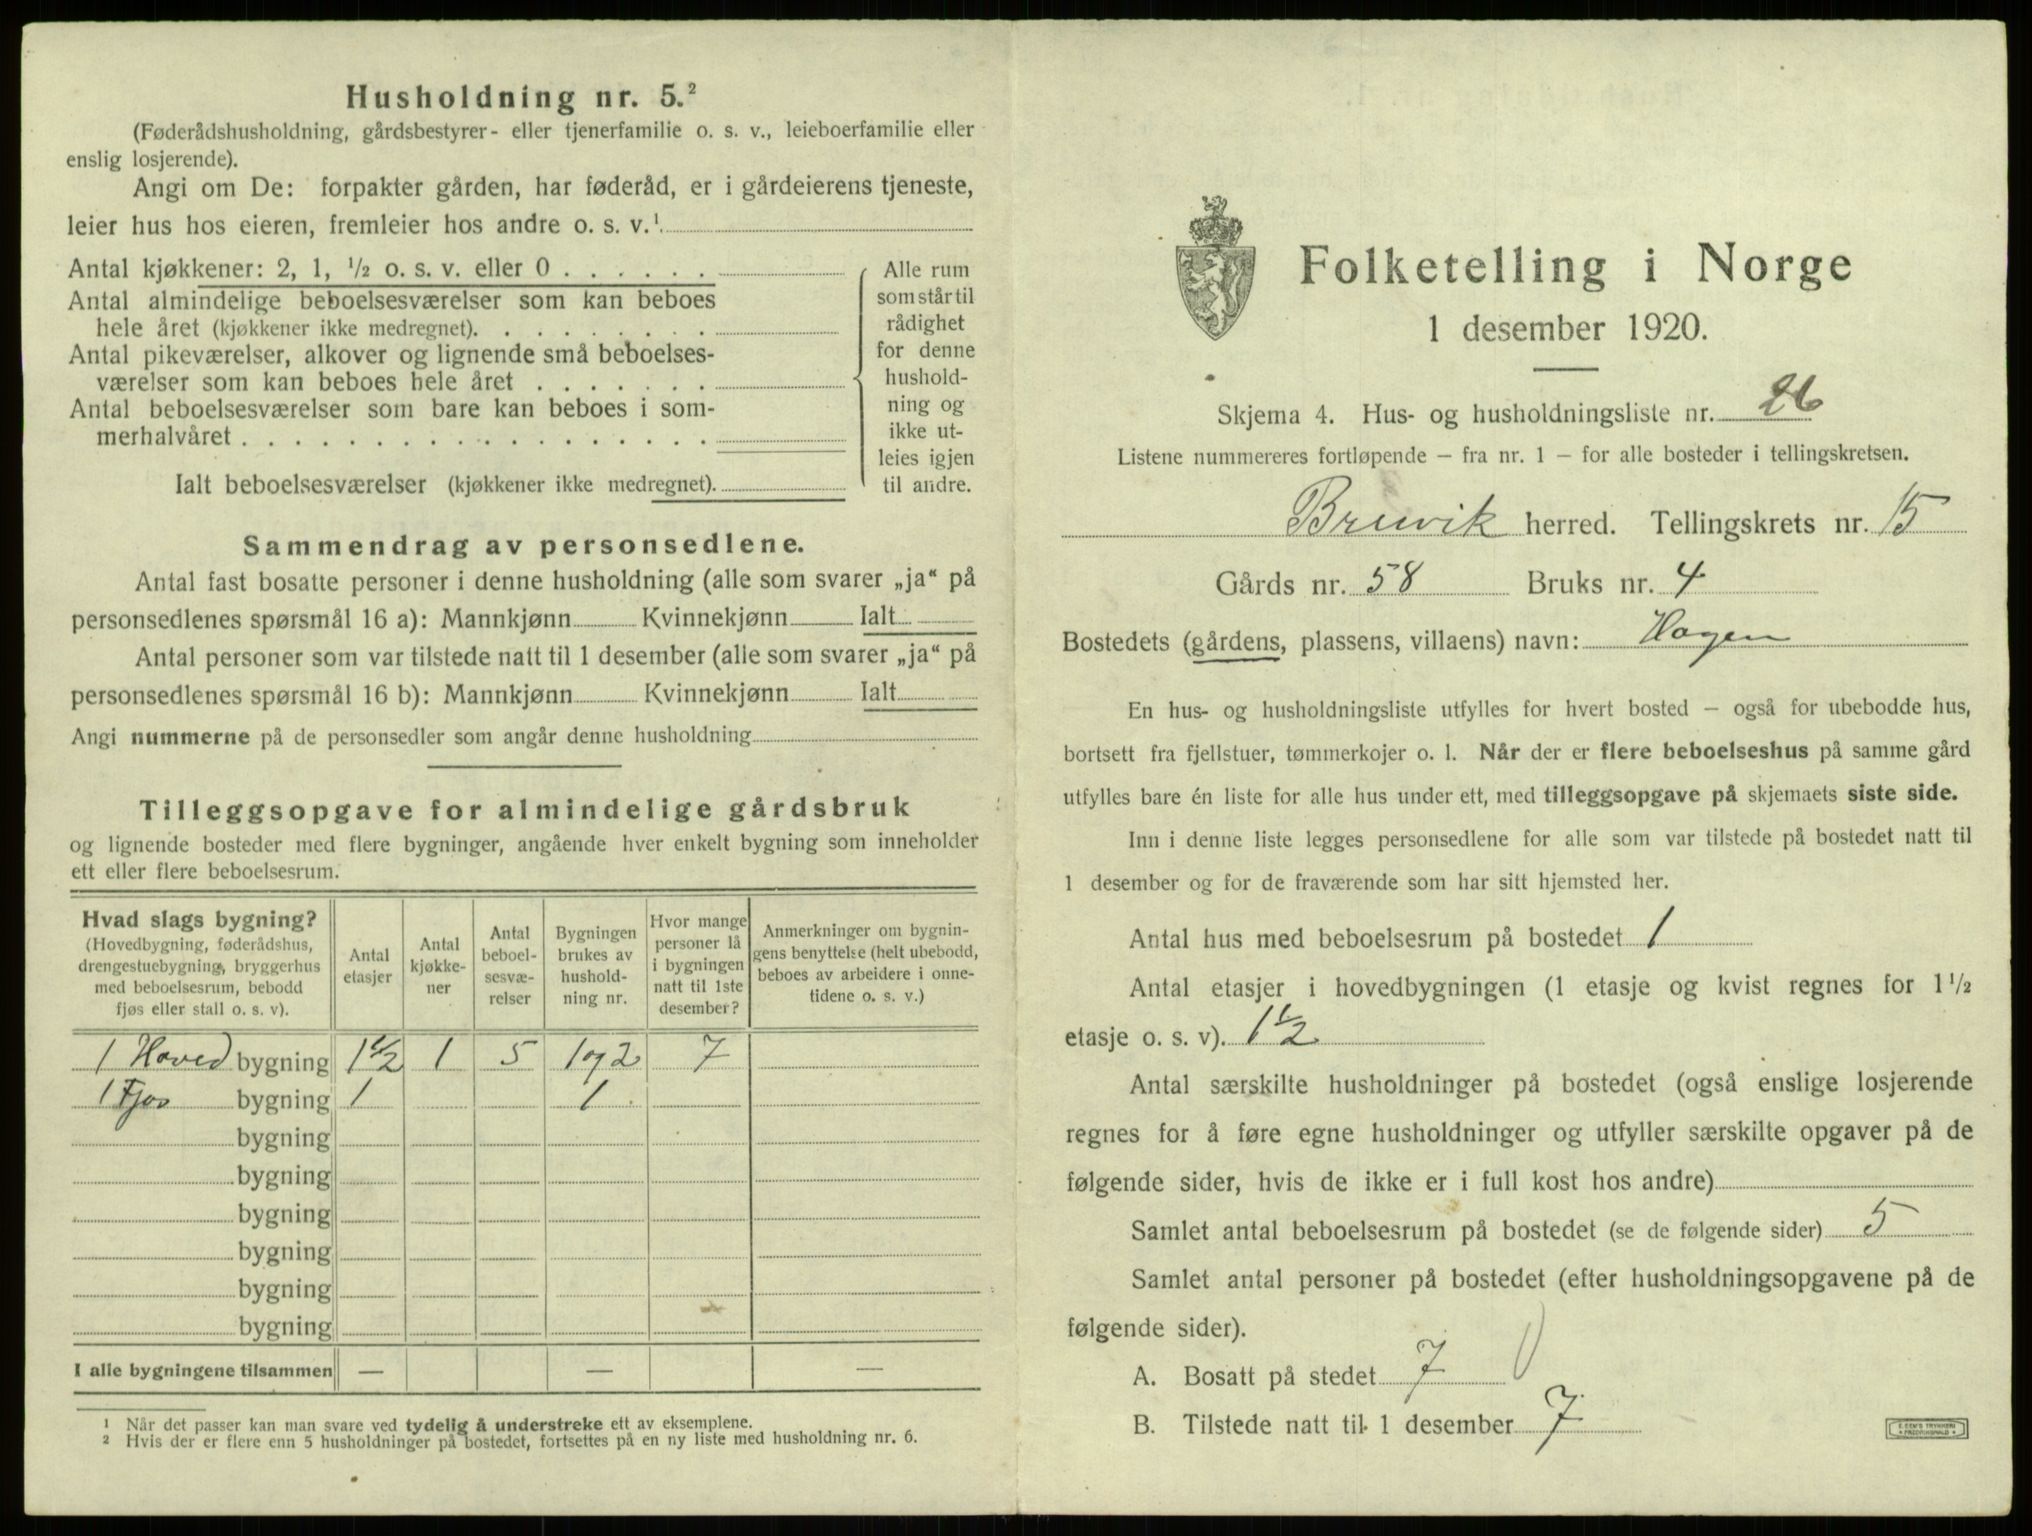 Husholdning nr. 5.²
(Føderådshusholdning, gårdsbestyrer- eller tjenerfamilie o. s. v., leieboerfamilie eller
enslig losjerende).
Angi om De: forpakter gården, har føderåd, er i gårdeierens tjeneste,
leier hus hos eieren, fremleier hos andre o. s. v.¹
Antal kjøkkener: 2, 1, ½ o. s. v. eller 0 . . . . . .
Antal almindelige beboelsesværelser som kan beboes
hele året (kjøkkener ikke medregnet). . . . . . . . .
Antal pikeværelser, alkover og lignende små beboelses-
værelser som kan beboes hele året . . . . . . .
Antal beboelsesværelser som bare kan beboes i som-
merhalvåret . . . . . . . . . . . . . . . . . .
Ialt beboelsesværelser (kjøkkener ikke medregnet).
Alle rum
som står til
rådighet
for denne
hushold-
ning og
ikke ut-
leies igjen
til andre.
Sammendrag av personsedlene.
Antal fast bosatte personer i denne husholdning (alle som svarer „ja“ på
personsedlenes spørsmål 16 a): Mannkjønn Kvinnekjønn Ialt
Antal personer som var tilstede natt til 1 desember (alle som svarer „ja“ på
personsedlenes spørsmål 16 b): Mannkjønn Kvinnekjønn Ialt
Angi nummerne på de personsedler som angår denne husholdning
Tilleggsopgave for almindelige gårdsbruk
og lignende bosteder med flere bygninger, angående hver enkelt bygning som inneholder
ett eller flere beboelsesrum.
Hvad slags bygning?
(Hovedbygning, føderådshus,
drengestuebygning, bryggerhus
med beboelsesrum, bebodd
fjøs eller stall o. s. v).
Antal
etasjer
Antal
kjøkke-
ner
Antal
beboel-
sesvæ-
relser
Bygningen
brukes av
hushold-
ning nr.
Hvor mange
personer lå
i bygningen
natt til 1ste
desember?
Anmerkninger om bygnin-
gens benyttelse (helt ubebodd,
beboes av arbeidere i onne-
tidene o. s. v.)
1 Hoved bygning 1½ 1 5 1 og 2 7
1 Fjos bygning 1 1
bygning
bygning
bygning
bygning
bygning
bygning
I alle bygningene tilsammen — — —
¹ Når det passer kan man svare ved tydelig å understreke ett av eksemplene.
² Hvis der er flere enn 5 husholdninger på bostedet, fortsettes på en ny liste med husholdning nr. 6.
Folketelling i Norge
1 desember 1920.
Skjema 4. Hus- og husholdningsliste nr. 26
Listene nummereres fortløpende — fra nr. 1 — for alle bosteder i tellingskretsen.
Bruvik herred. Tellingskrets nr. 15
Gårds nr. 58 Bruks nr. 4
Bostedets (gårdens, plassens, villaens) navn: Hagen
En hus- og husholdningsliste utfylles for hvert bosted — også for ubebodde hus,
bortsett fra fjellstuer, tømmerkojer o. l. Når der er flere beboelseshus på samme gård
utfylles bare én liste for alle hus under ett, med tilleggsopgave på skjemaets siste side.
Inn i denne liste legges personsedlene for alle som var tilstede på bostedet natt til
1 desember og for de fraværende som har sitt hjemsted her.
Antal hus med beboelsesrum på bostedet 1
Antal etasjer i hovedbygningen (1 etasje og kvist regnes for 1½
etasje o. s. v). 1½
Antal særskilte husholdninger på bostedet (også enslige losjerende
regnes for å føre egne husholdninger og utfyller særskilte opgaver på de
følgende sider, hvis de ikke er i full kost hos andre)
Samlet antal beboelsesrum på bostedet (se de følgende sider) 5
Samlet antal personer på bostedet (efter husholdningsopgavene på de
følgende sider).
A. Bosatt på stedet 7
B. Tilstede natt til 1 desember 7